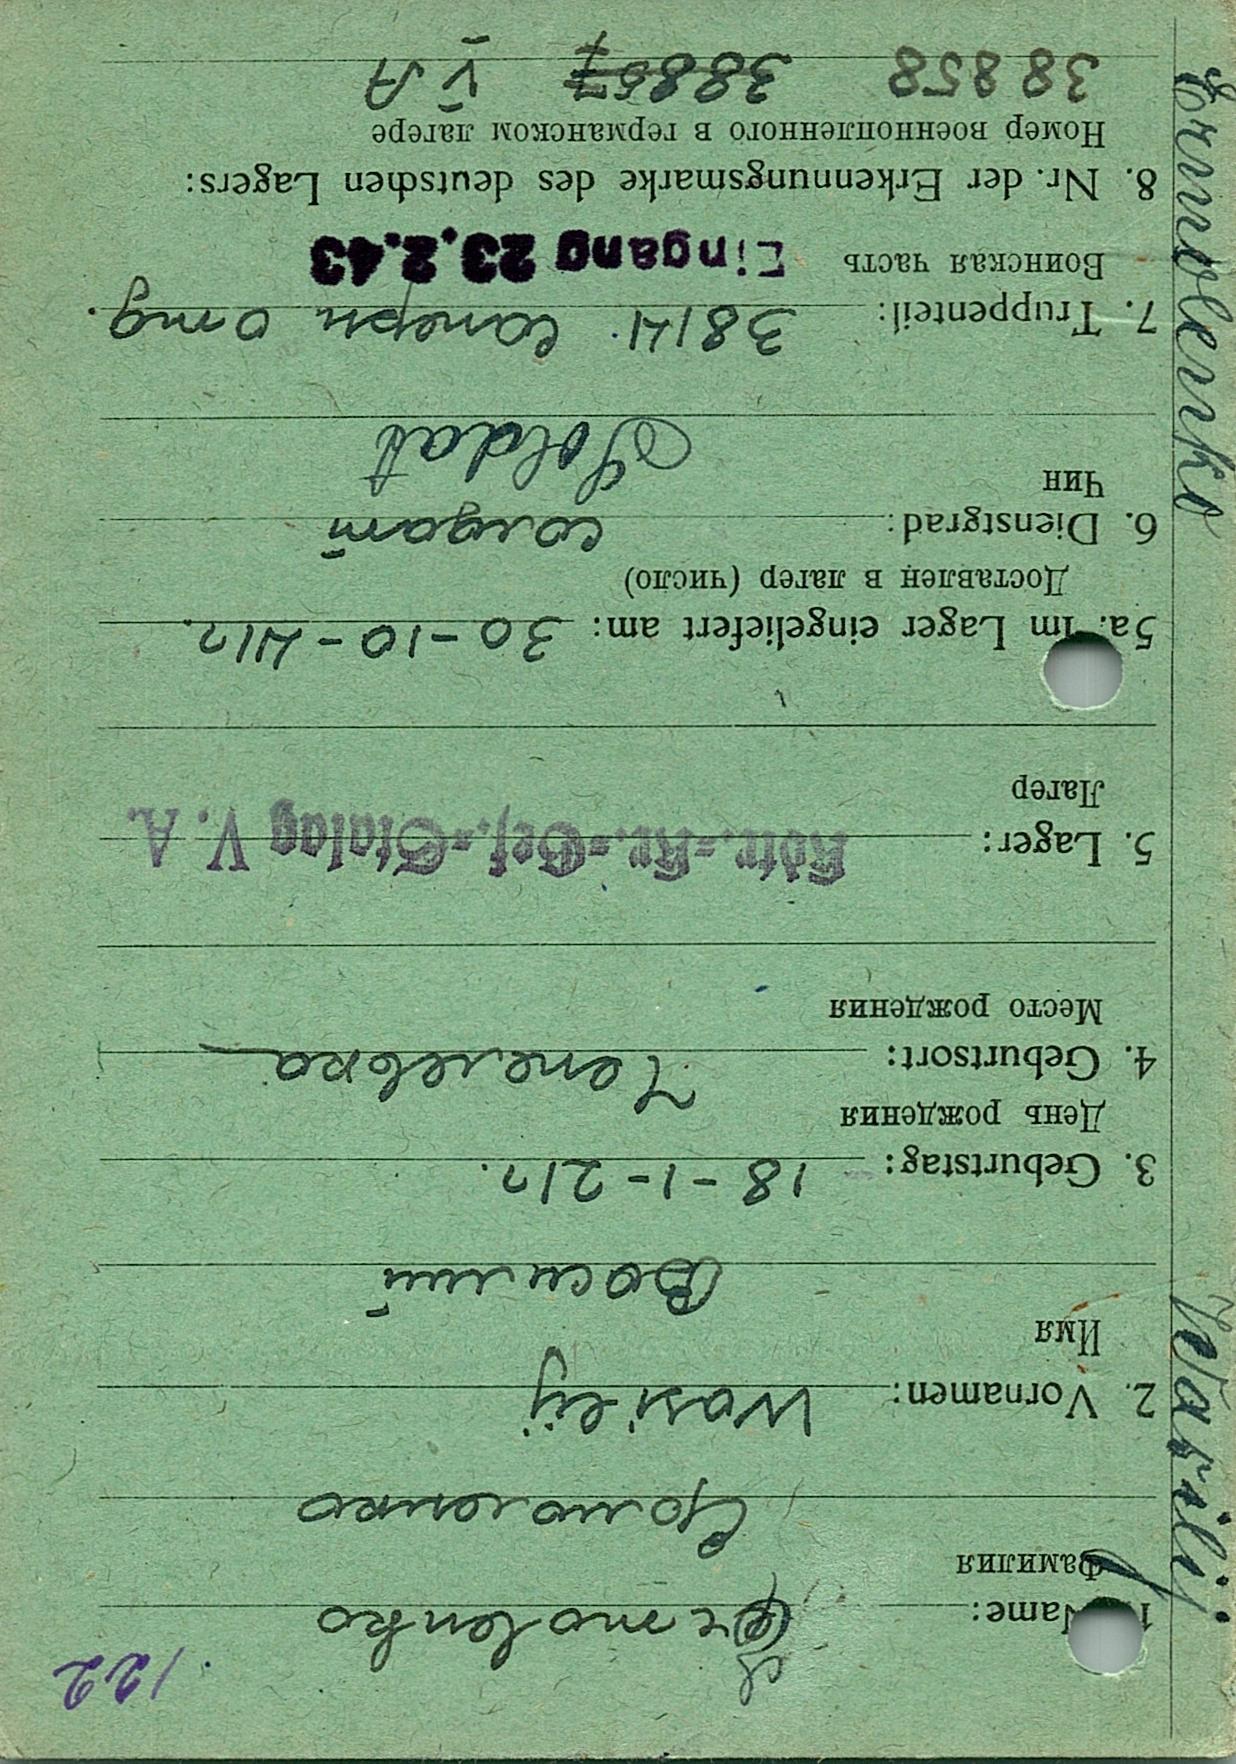 122
1. Name: Ermolenko
Фамилия Ермоленко
2. Vornamen: Wasilij
Имя Василий
3. Geburtstag: 18-1-21г.
День рождения
4. Geburtsort: Чепелевка
Место рождения
5. Lager: Kdtr.=Kr.=Gef.=Stalag V. A.
Лагер
5a. Im Lager eingeliefert am: 30-10-41г.
Доставлен в лагер (число)
6. Dienstgrad: солдат
Чин Soldat
7. Truppenteil: 38141.
Воинская часть Eingang 23.2.43
8. Nr. der Erkennungsmarke des deutschen Lagers:
Номер военнопленного в германском лагере
38858 38857 V A
Ermolenko Wasilij